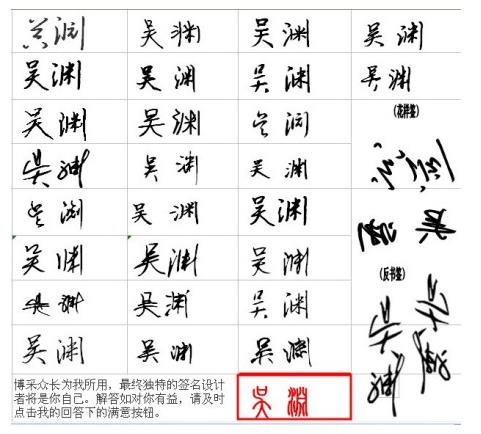 吴渊 吴渊 吴渊 吴渊
吴渊 吴渊 吴渊 吴渊
吴渊 吴渊 吴渊 (花样签)
吴渊 吴渊 吴渊
吴渊 吴渊 吴渊 吴渊
吴渊 吴渊 吴渊 (反书签)
吴渊 吴渊 吴渊
吴渊 吴渊 吴渊
博采众长为我所用，最终独特的签名设计
者将是你自己。解答如对你有益，请及时
点击我的回答下的满意按钮。
吴渊